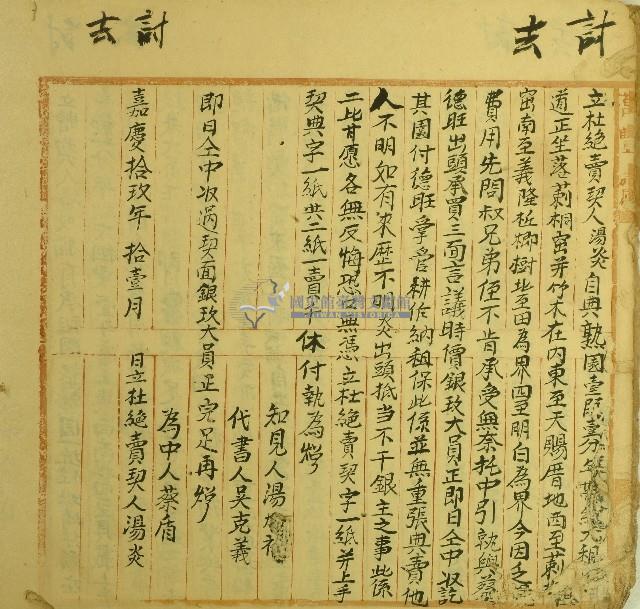 計去
計去
立杜絕賣契人湯炎自典熟園壹所
道正坐落莿桐宅并竹木在內東至天賜厝地西至莿
宅南至義隆柘榔樹北至田為界四至明白為界今因乏
費用先問叔兄弟侄不肯承受無奈托中引就與蔡
德旺出頭承買三面言議時價銀玖大員正即日仝中收訖
其園付德旺掌管耕作納租保此係並無重張典賣他
人不明如有來歷不明炎出頭抵当不干銀主之事此係
二比甘愿各無反悔恐無憑立杜絕賣契字一紙并上手
契典字一紙共二紙一賣千休付執為炤
即日仝中收過契面銀玖大員正完足再炤
知見人湯
代書人吳克義
為中人蔡盾
嘉慶拾玖年拾壹月 日立杜絕賣契人湯炎
國史館臺灣文獻館
TAIWAN HISTORICA